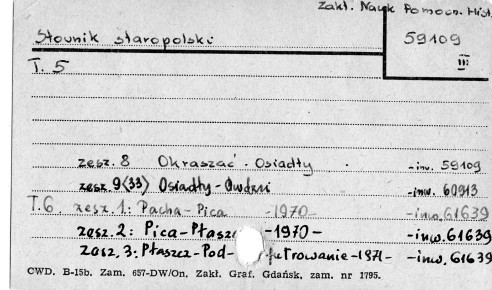 Zakł. Nauk Pomocn. Hist.
Słownik staropolski
59109
III
T. 5
zesz. 8 Okraszać - Osiadły -inw. 59109
zesz. 9(33) Osiadły - -inw. 60913
T.6. zesz. 1: Pacha - Pica -1970- -inw. 61639
zesz. 2: Pica - -1970- -inw. 61639
zesz. 3: Płaszcz - Pod- -1971- -inw. 61639
CWD. B-15b. Zam. 657-DW/On. Zakł. Graf. Gdańsk, zam. nr 1795.